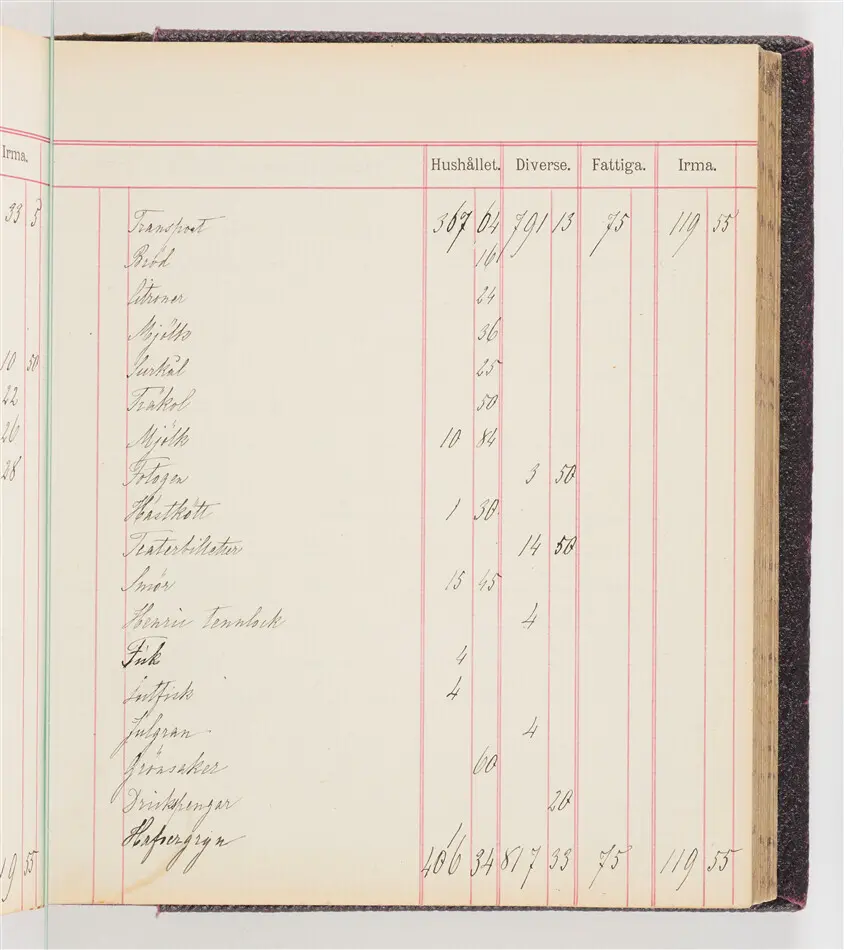 Irma.
33 5
10 50
22
26
28
19 55
Hushållet. Diverse. Fattiga. Irma.
Transport 367 64 791 13 75 119 55
Bröd 16
Citroner 24
Mjölk 36
Surkål 25
Träkol 50
Mjölk 10 84
Fotogen 3 50
Hästkött 1 30
Teaterbilletter 14 50
Smör 15 45
Henric tennlock 4
Fisk 4
Lutfisk 4
Julgran 4
Grönsaker 60
Drickspengar 20
Hafregryn 1
406 34 817 33 75 119 55